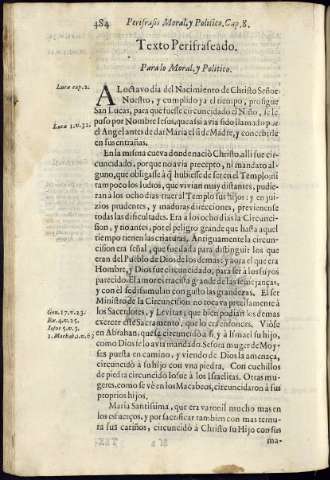 484 Perifrasis Moral, y Politico, Cap. 8.
Texto Perifraseado.
Para lo Moral, y Politico.
Luca cap. 2.
A Loctavo dia del Nacimiento de Christo Señor
Nuestro, y cumplido ya el tiempo, prosigue
San Lucas, para que fuesse circuncidado el Niño, se le
puso por Nombre Iesus, que assi avia sido llamado por
Lucæ 1. v. 31.
el Angel antes de dar Maria el si de Madre, y concebirle
en sus entrañas.
En la misma cueva donde naciò Christo, alli fue cir-
cuncidado, porque no avia precepto, ni mandato al-
guno, que obligasse à q̃ huviesse de ser en el Templo; ni
tampoco los Iudios, que vivian muy distantes, pudie-
ran à los ocho dias traer al Templo sus hijos: y en jui-
zios prudentes, y maduras direcciones, previenense
todas las dificultades. Era à los ocho dias la Circunci-
sion, y no antes, por el peligro grande que hasta aquel
tiempo tienen las criaturas. Antiguamente la circun-
cision era señal, que fue dada para distinguir los que
eran del Pueblo de Dios de los demas: y aora el que era
Hombre, y Dios fue circuncidado, para ser à los suyos
parecido. El amor es traça grande de semejanças,
y con el se dissimulan con gusto las grandezas. El ser
Ministro de la Circuncision no tocava precisamente à
los Sacerdotes, y Levitas; que bien podian los demas
exercer este Sacramento, que lo era entonces. Viòse
Gen. 17. v. 23.
en Abrahan, que se circuncidò à sì, y à Ismael su hijo,
como Dios se lo avia mandado. Sefora muger de Moy-
Exo. 4. v. 25.
ses puesta en camino, y viendo de Dios la amenaça,
circuncidò à su hijo con vna piedra. Con cuchillos
Iosue 5. v. 3.
de piedra circuncidò Iosue à los Israelitas. Otras mu-
1. Machab. 1. v. 63
geres, como se vè en los Macabeos, circuncidaron à sus
proprios hijos.
Maria Santissima, que era varonil mucho mas en
los esfuerços, y por sacrificar tambien con mas ternu-
ra sus cariños, circuncidò à Christo su Hijo con sus
ma-